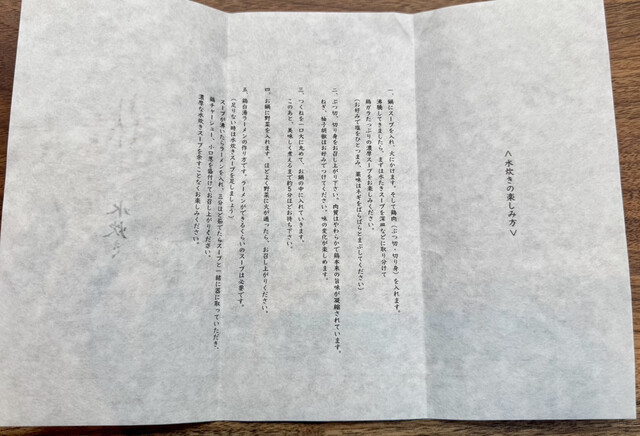 <水炊きの楽しみ方>
一、鍋にスープを入れ、火にかけます。そして鶏肉(ぶつ切・切り身)を入れます。
沸騰してきましたら、まずは水たきスープを深皿などに取り分けて
鶏ガラたっぷりの濃厚スープをお楽しみください。
(お好みで塩をひとつまみ、薬味はネギをぱらぱらとまぶしてください)
二、ぶつ切、切り身をお召し上がり下さい。肉質はやわらかで鶏本来の旨味が凝縮されています。
ねぎ、柚子胡椒はお好みでつけてください。味の変化が楽しめます。
三、つくねを一口大に丸めて、お鍋の中に入れていきます。
このあと、美味しく煮えるまで約5分ほどお待ち下さい。
四、お鍋に野菜を入れます。ほどよく野菜に火が通ったら、お召し上がりください。
五、鶏白湯ラーメンの作り方です。ラーメンができるくらいのスープは必要です。
(足りない時は水炊きスープを足しましょう)
スープが沸いたらラーメンを入れ、三分ほど茹でたらスープと一緒に器に取っていただき、
鶏チャーシュー、小口葱を盛付けてお召し上がりください。
濃厚な水炊きスープを余すことなくお楽しみください。